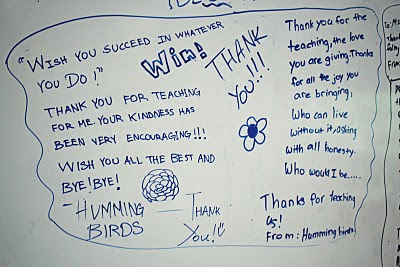 "WISH YOU SUCCEED IN WHATEVER
YOU DO!"
Win!
THANK
YOU!!!!
THANK YOU FOR TEACHING
FOR ME. YOUR KINDNESS HAS
BEEN VERY ENCOURAGING!!!
WISH YOU ALL THE BEST AND
BYE! BYE!
- HUMMING
BIRDS
THANK
You!!
Thank you for the
teaching, the love
you are giving. Thanks
for all the joy you
are bringing,
Who can live
without it, asking
with all honesty.
Who would I be.....
Thanks for teaching
us!
From: Humming birds